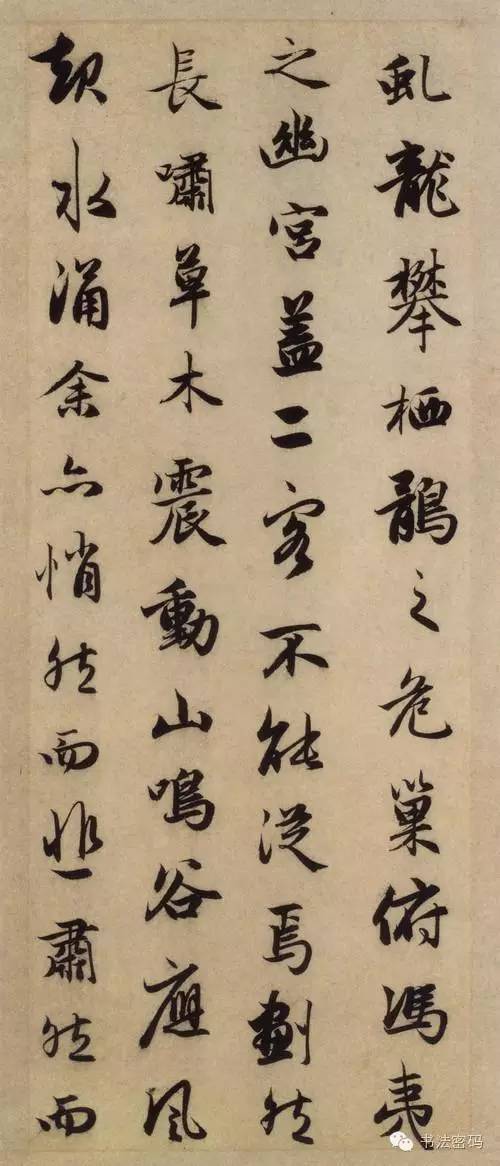 虬龍攀栖鶻之危巢俯馮夷
之幽宮蓋二客不能從焉劃然
長嘯草木震動山鳴谷應風
起水涌余亦悄然而悲肅然而
书法密码